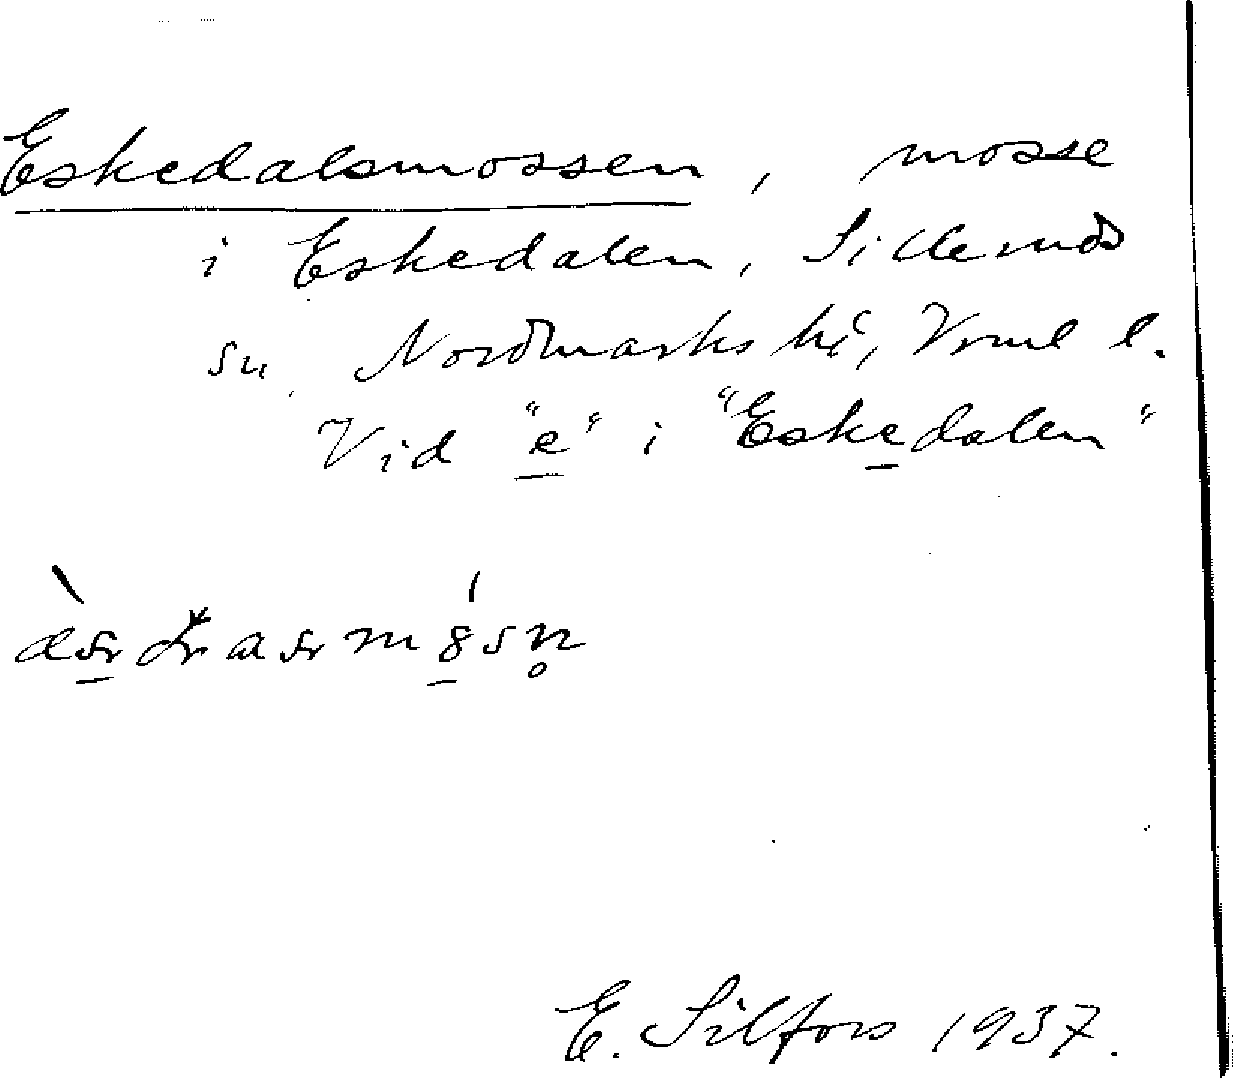 Eskedalsmossen, mosse
i Eskedalen, Silleruds
sn, Nordmarks hd, Vrml l.
Vid "e" i "Eskedalen"
E. Silfors 1937.